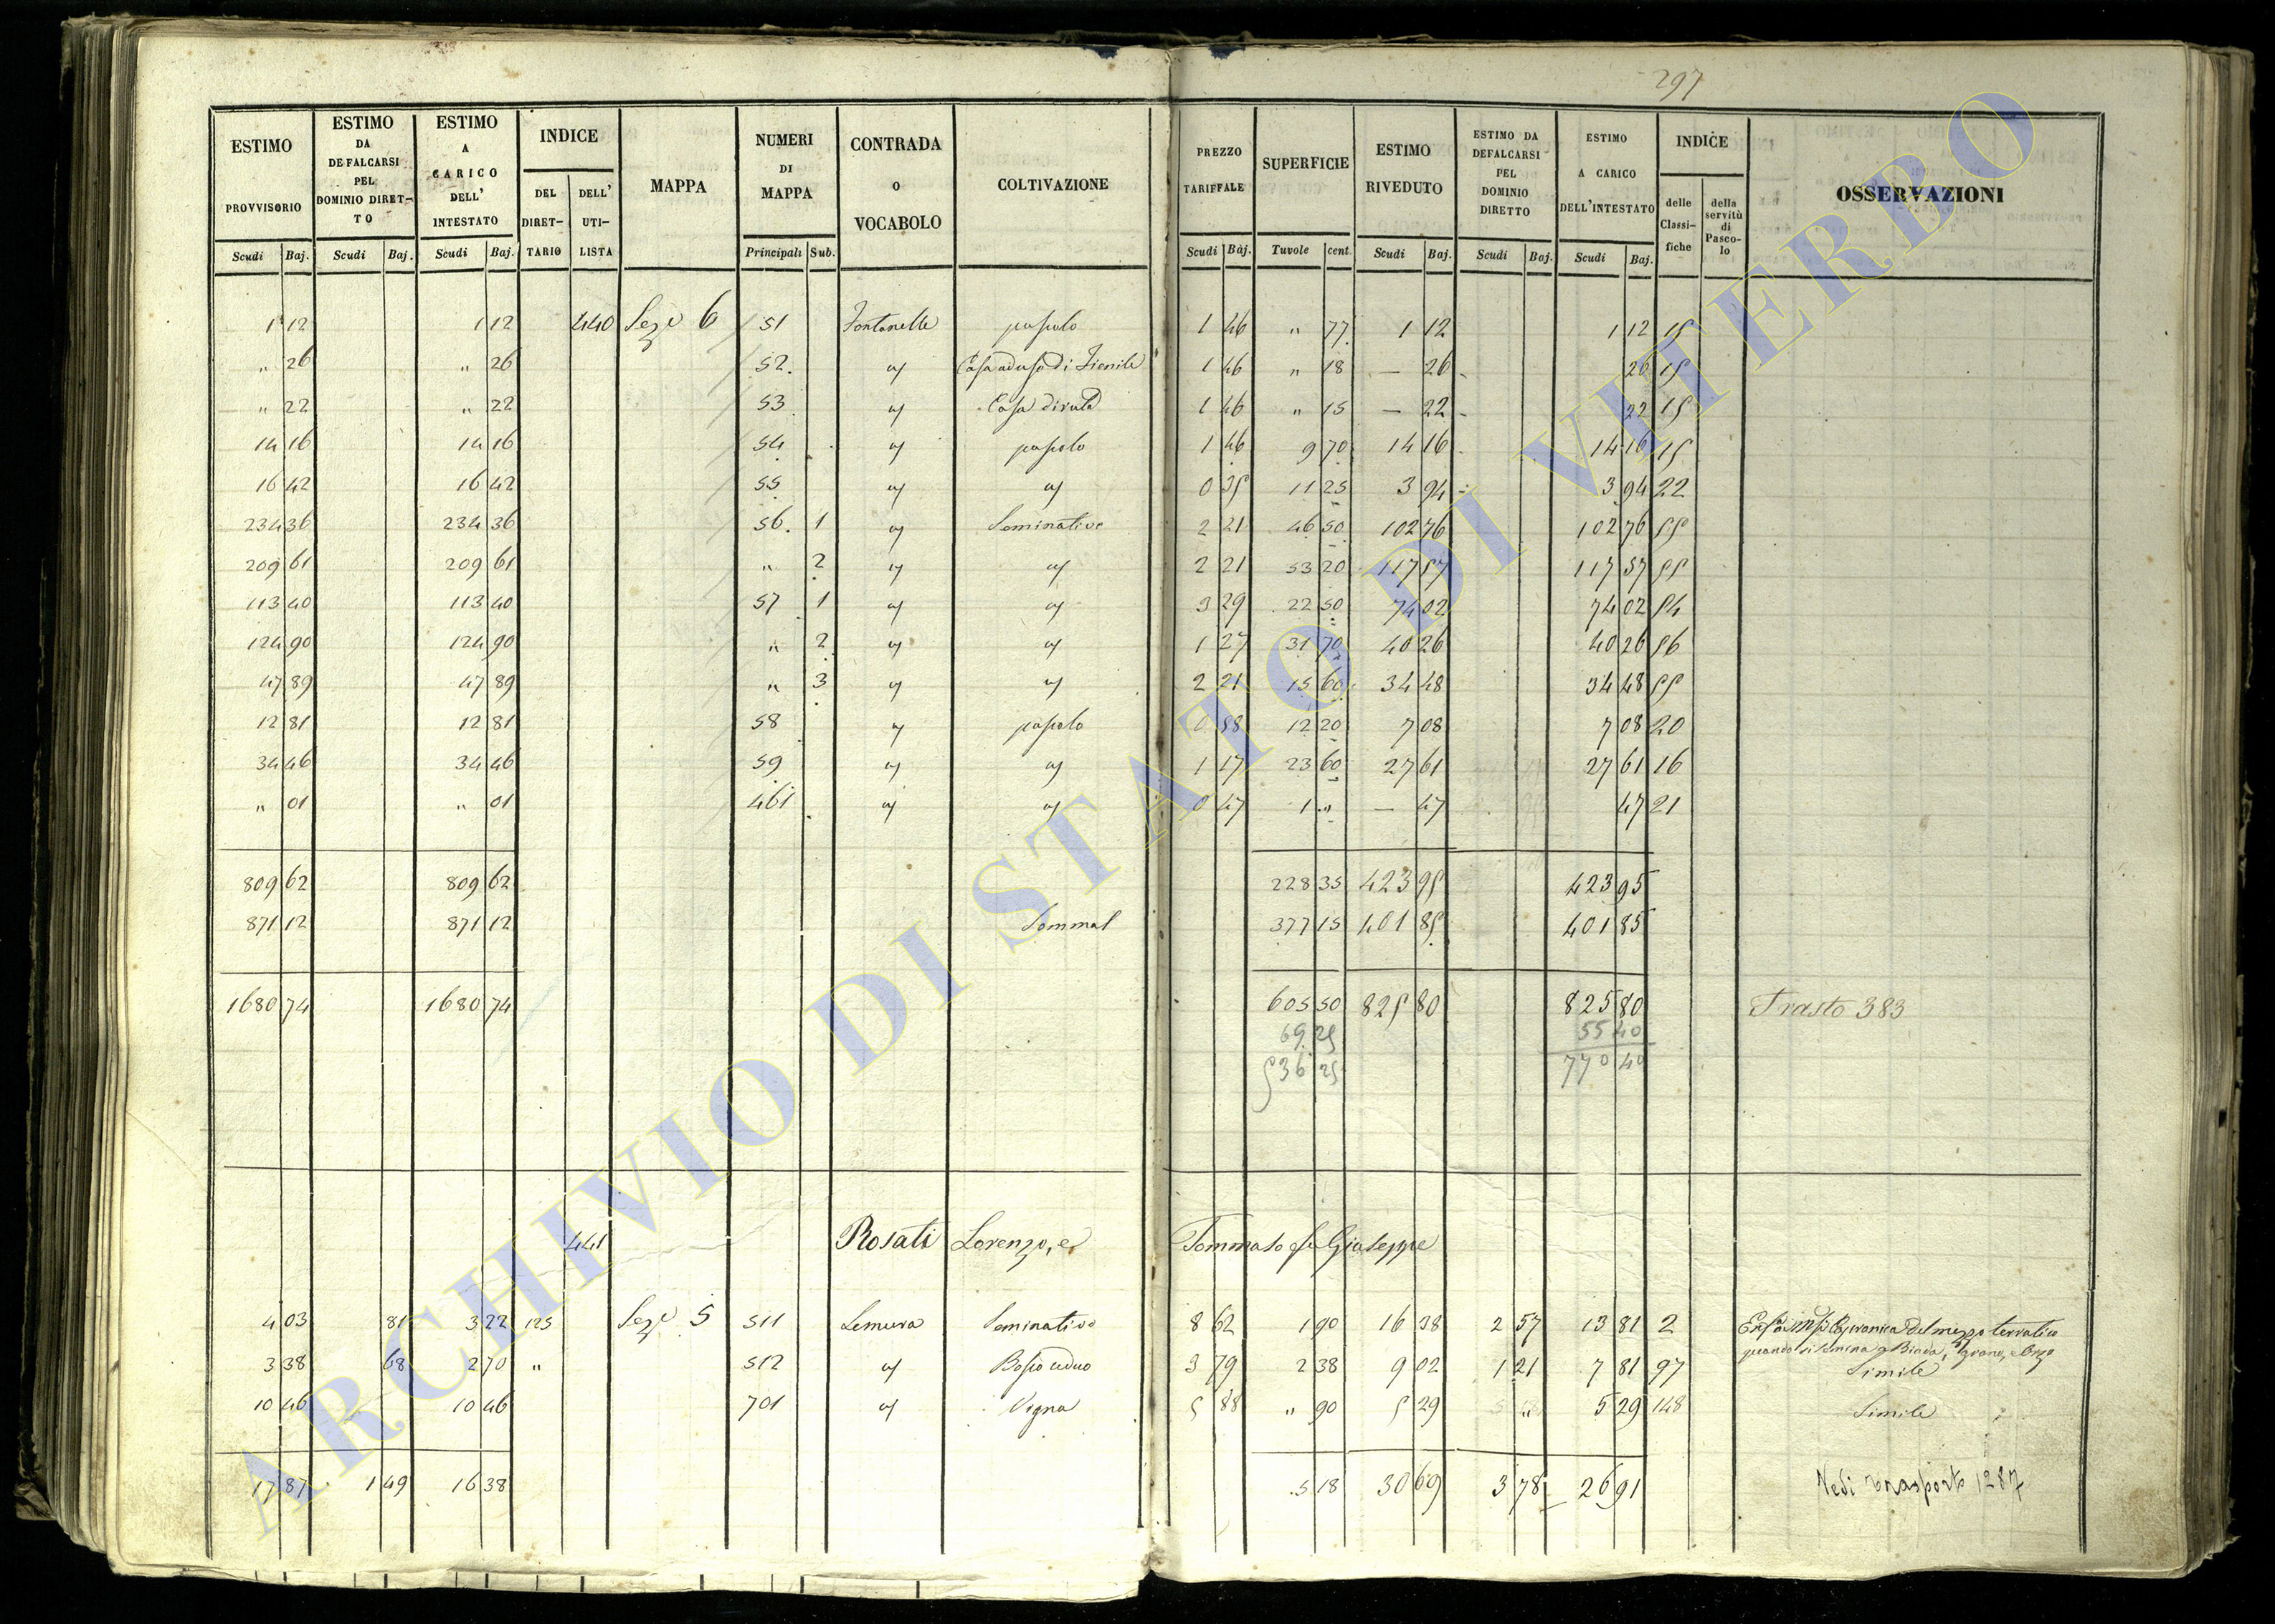 297
ESTIMO PROVVISORIO Scudi Baj. | ESTIMO DA DEFALCARSI PEL DOMINIO DIRET-TO Scudi Baj. | ESTIMO A CARICO DELL' INTESTATO Scudi Baj. | INDICE DEL DIRET-TARIO DELL' UTI-LISTA | MAPPA | NUMERI DI MAPPA Principali Sub. | CONTRADA O VOCABOLO | COLTIVAZIONE | PREZZO TARIFFALE Scudi Baj. | SUPERFICIE Tavole cent. | ESTIMO RIVEDUTO Scudi Baj. | ESTIMO DA DEFALCARSI PEL DOMINIO DIRETTO Scudi Baj. | ESTIMO A CARICO DELL'INTESTATO Scudi Baj. | INDICE delle Classi-fiche della servitù di Pasco-lo | OSSERVAZIONI
1 12 1 12 440 Sez.e 6 51 Fontanelle pascolo 1 46 " 77 1 12 1 12 15
" 26 " 26 52. Casa ad uso di Fienile 1 46 " 18 — 26 26 15
" 22 " 22 53 Casa diruta 1 46 " 15 — 22 22 15
14 16 14 16 54 pascolo 1 46 9 70 14 16 14 16 15
16 42 16 42 55 0 35 11 25 3 94 3 94 22
234 36 234 36 56. 1 Seminativo 2 21 46 50 102 76 102 76 55
209 61 209 61 " 2 2 21 53 20 117 57 117 57 55
113 40 113 40 57 1 3 29 22 50 74 02 74 02 54
124 90 124 90 " 2 1 27 31 70 40 26 40 26 56
47 89 47 89 " 3 2 21 15 60 34 48 34 48 55
12 81 12 81 58 pascolo 0 58 12 20 7 08 7 08 20
34 46 34 46 59 1 17 23 60 27 61 27 61 16
" 01 " 01 461 0 47 1 " — 47 47 21
809 62 809 62 228 35 423 95 423 95
871 12 871 12 Somma 377 15 401 85 401 85
1680 74 1680 74 605 50 825 80 825 80 Trasto 383
69 25 55 40
536 25 770 40
441 Rosati Lorenzo, e Tommaso fu Giuseppe
4 03 81 3 22 125 Sez.e 5 511 Lemura Seminativo 8 62 1 90 16 38 2 57 13 81 2 del mezzo terratico
quando si semina a Biada, grano, e Orzo
3 38 68 2 70 " 512 Bosco ceduo 3 79 2 38 9 02 1 21 7 81 97 Simile
10 46 10 46 701 Vigna 5 88 " 90 5 29 " 5 29 148 Simile
17 87 1 49 16 38 5 18 30 69 3 78 26 91 Vedi trasporto 1287
ARCHIVIO DI STATO DI VITERBO